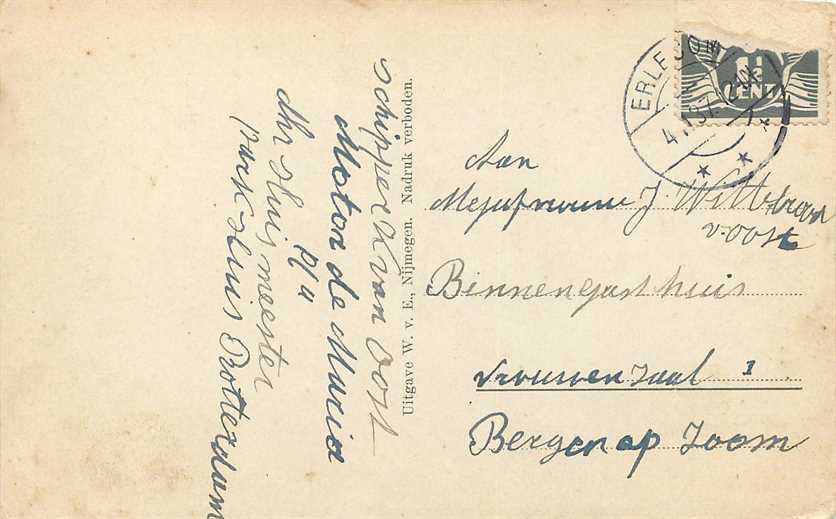 schipper K van Oost
Motor de Maria
P/a
dhr Huismeester
park Huis Rotterdam
Uitgave W. v. E., Nijmegen. Nadruk verboden.
ERLECOM
4 37 2
1½
CENT
Aan
Mejufvrouw J. Wittebrood
v. oost
Binnengasthuis
Vrouwenzaal 1
Bergen op Zoom